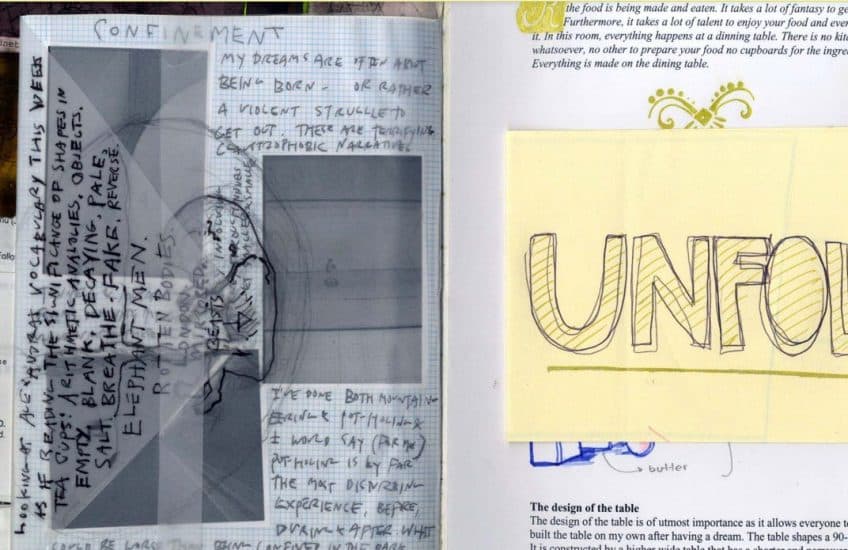 CONFINEMENT
MY DREAMS ARE OFTEN ABOUT
BEING BORN - OR RATHER
A VIOLENT STRUGGLE TO
GET OUT. THESE ARE TERRIFYING
CLAUSTROPHOBIC NARRATIVES
LOOKING AT VOCABULARY THIS WEEK
AS IF READING THE SIGNIFICANCE OF SHAPES IN
TEA CUPS! ARITHMETIC ANALOGIES, OBJECTS.
EMPTY, BLANK, DECAYING, PALE,
SALT, BREATHE, FAKE, REVERSE.
ELEPHANT MEN.
ROTTEN BODIES.
LONDON
BEASTS
I'VE DONE BOTH MOUNTAIN
EERING & POT-HOLING &
I WOULD SAY (FOR ME)
POT-HOLING IS BY FAR
THE MOST DISTURBING
EXPERIENCE, BEFORE,
DURING & AFTER. WHAT
COULD BE WORSE THAN BEING CONFINED IN THE DARK
the food is being made and eaten. It takes a lot of fantasy to ge
Furthermore, it takes a lot of talent to enjoy your food and ever
it. In this room, everything happens at a dinning table. There is no kit
whatsoever, no other to prepare your food no cupboards for the ingre
Everything is made on the dining table.
UNFOL
butter
The design of the table
The design of the table is of utmost importance as it allows everyone to
built the table on my own after having a dream. The table shapes a 90-
It is constructed by a higher wide table that has a shorter and narrower